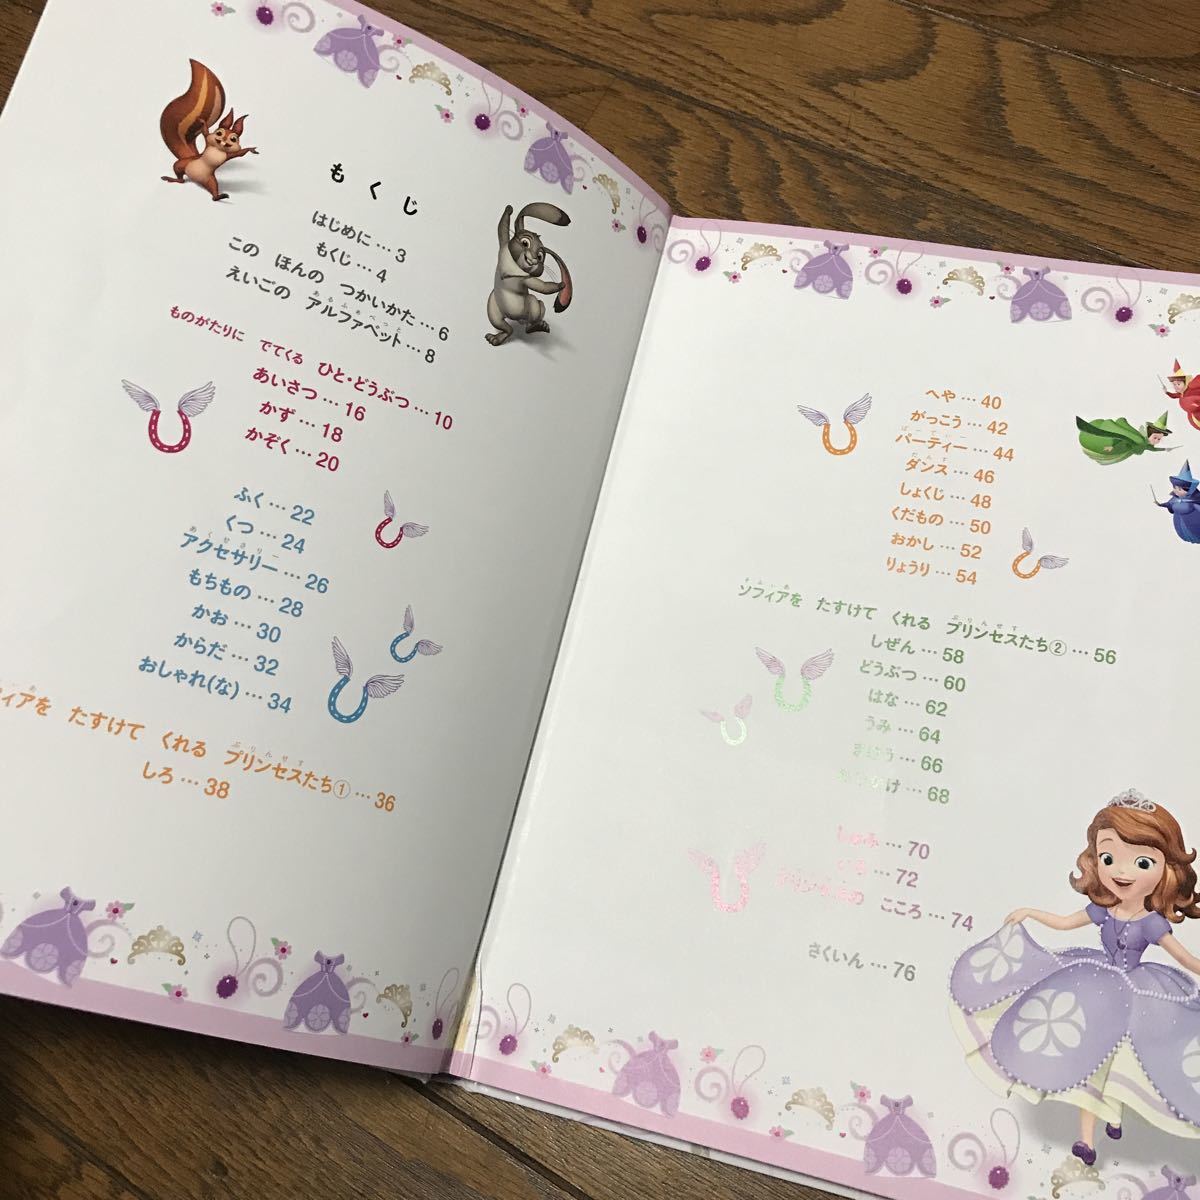 もくじ
はじめに…3
もくじ…4
この ほんの つかいかた…6
えいごの アルファベット…8
ものがたりに でてくる ひと・どうぶつ…10
あいさつ…16
かず…18
かぞく…20
ふく…22
くつ…24
アクセサリー…26
もちもの…28
かお…30
からだ…32
おしゃれ(な)…34
ィアを たすけて くれる プリンセスたち①…36
しろ…38
へや…40
がっこう…42
パーティー…44
ダンス…46
しょくじ…48
くだもの…50
おかし…52
りょうり…54
ソフィアを たすけて くれる プリンセスたち②…56
しぜん…58
どうぶつ…60
はな…62
うみ…64
まほう…66
…68
しゅみ…70
いろ…72
プリンセスの こころ…74
さくいん…76